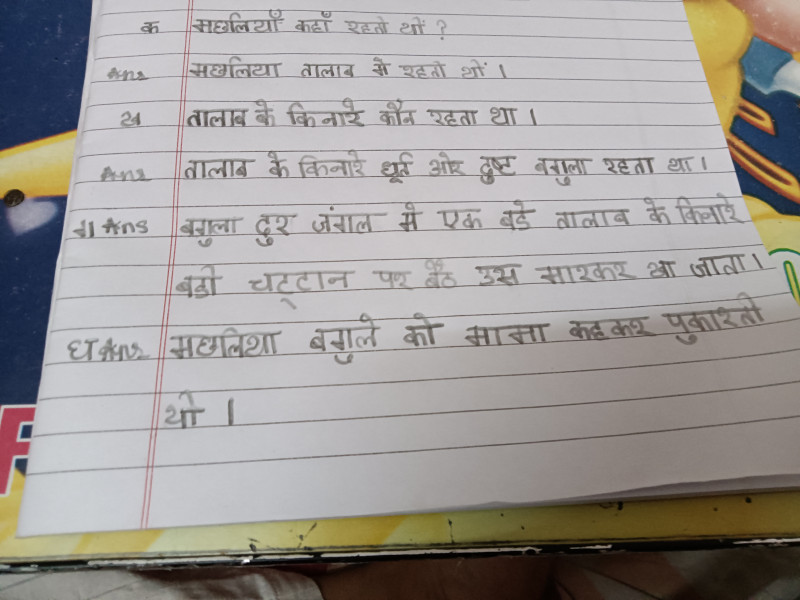 क मछलियाँ कहाँ रहतो थों ?
Ans मछलिया तालाब मे रहतो थों ।
ख तालाब के किनारे कौन रहता था ।
Ans तालाब के किनारे धूर्त ओर दुष्ट बगुला रहता था ।
ग Ans बगुला दुर जंगल मे एक बडे तालाब के किनारे
बडो चट्टान पर बैठ उस मारकर खा जाता ।
घ Ans मछलिया बगुले को मामा कहकर पुकारतो
थो ।